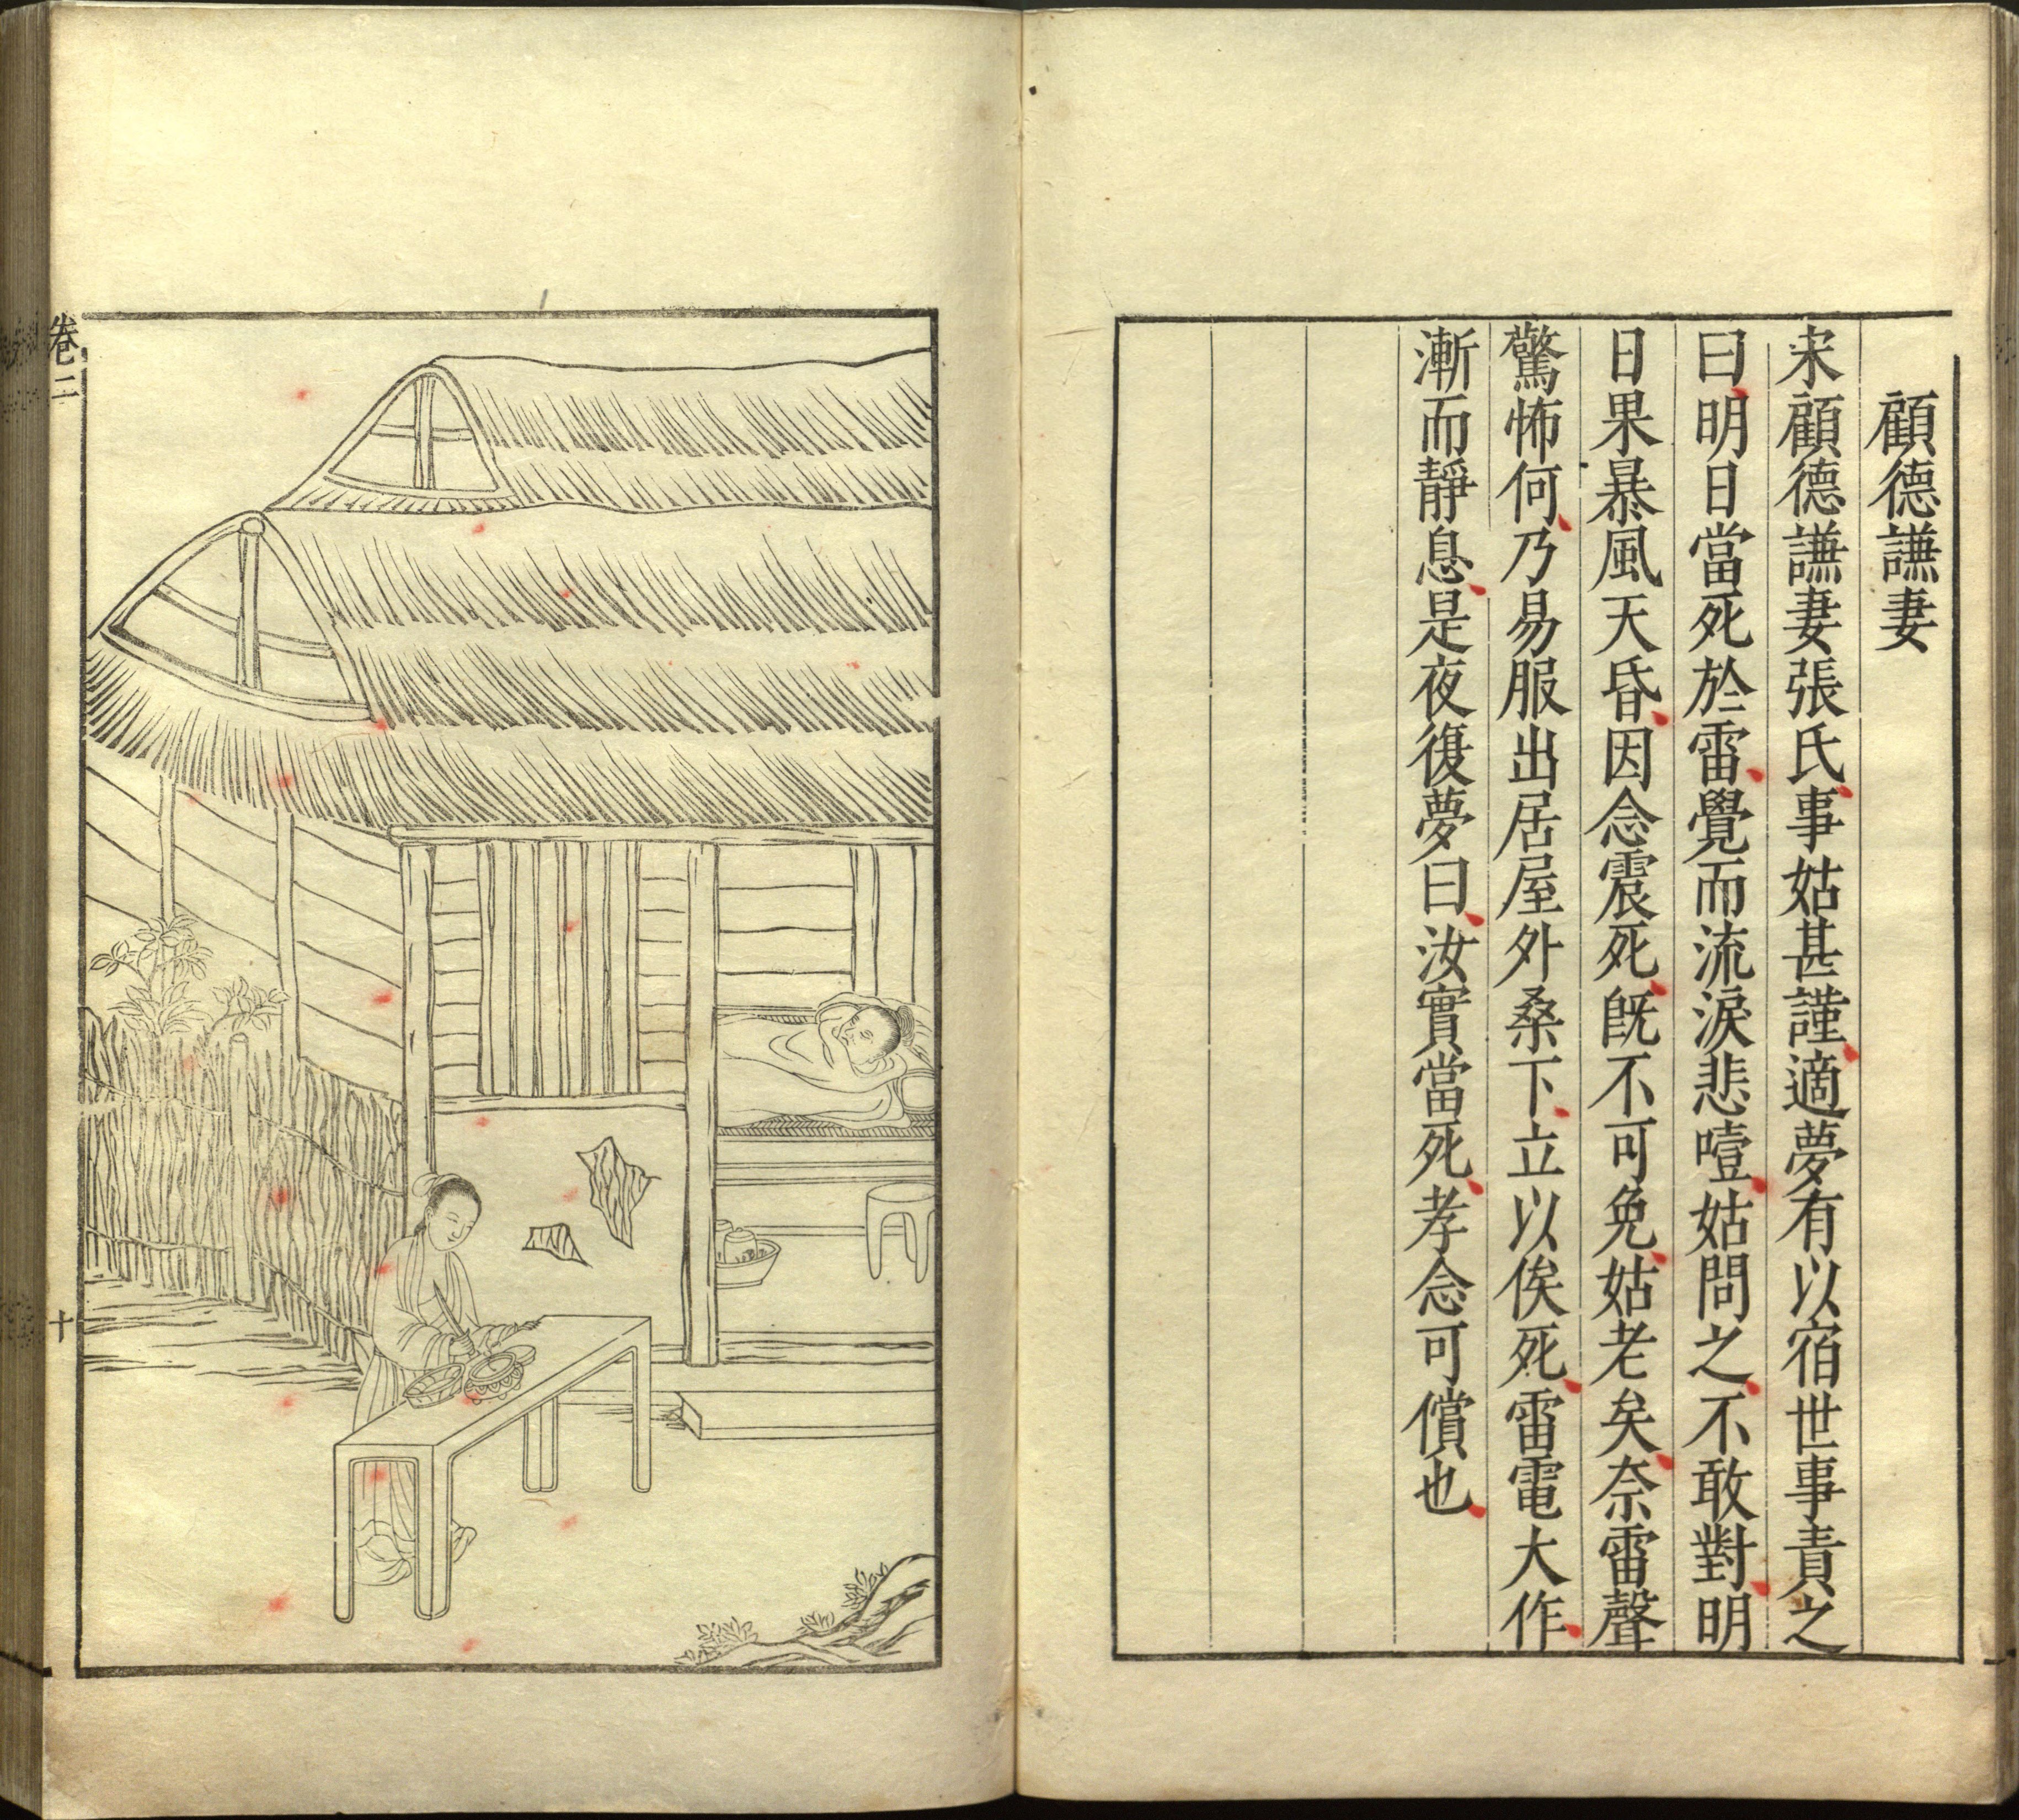 顧德謙妻
宋顧德謙妻張氏事姑甚謹適夢有以宿世事責之
曰明日當死於雷覺而流淚悲噎姑問之不敢對明
日果暴風天昏因念震死旣不可免姑老矣奈雷聲
驚怖何乃易服出居屋外桑下立以俟死雷電大作
漸而靜息是夜復夢曰汝實當死孝念可償也
卷二
十